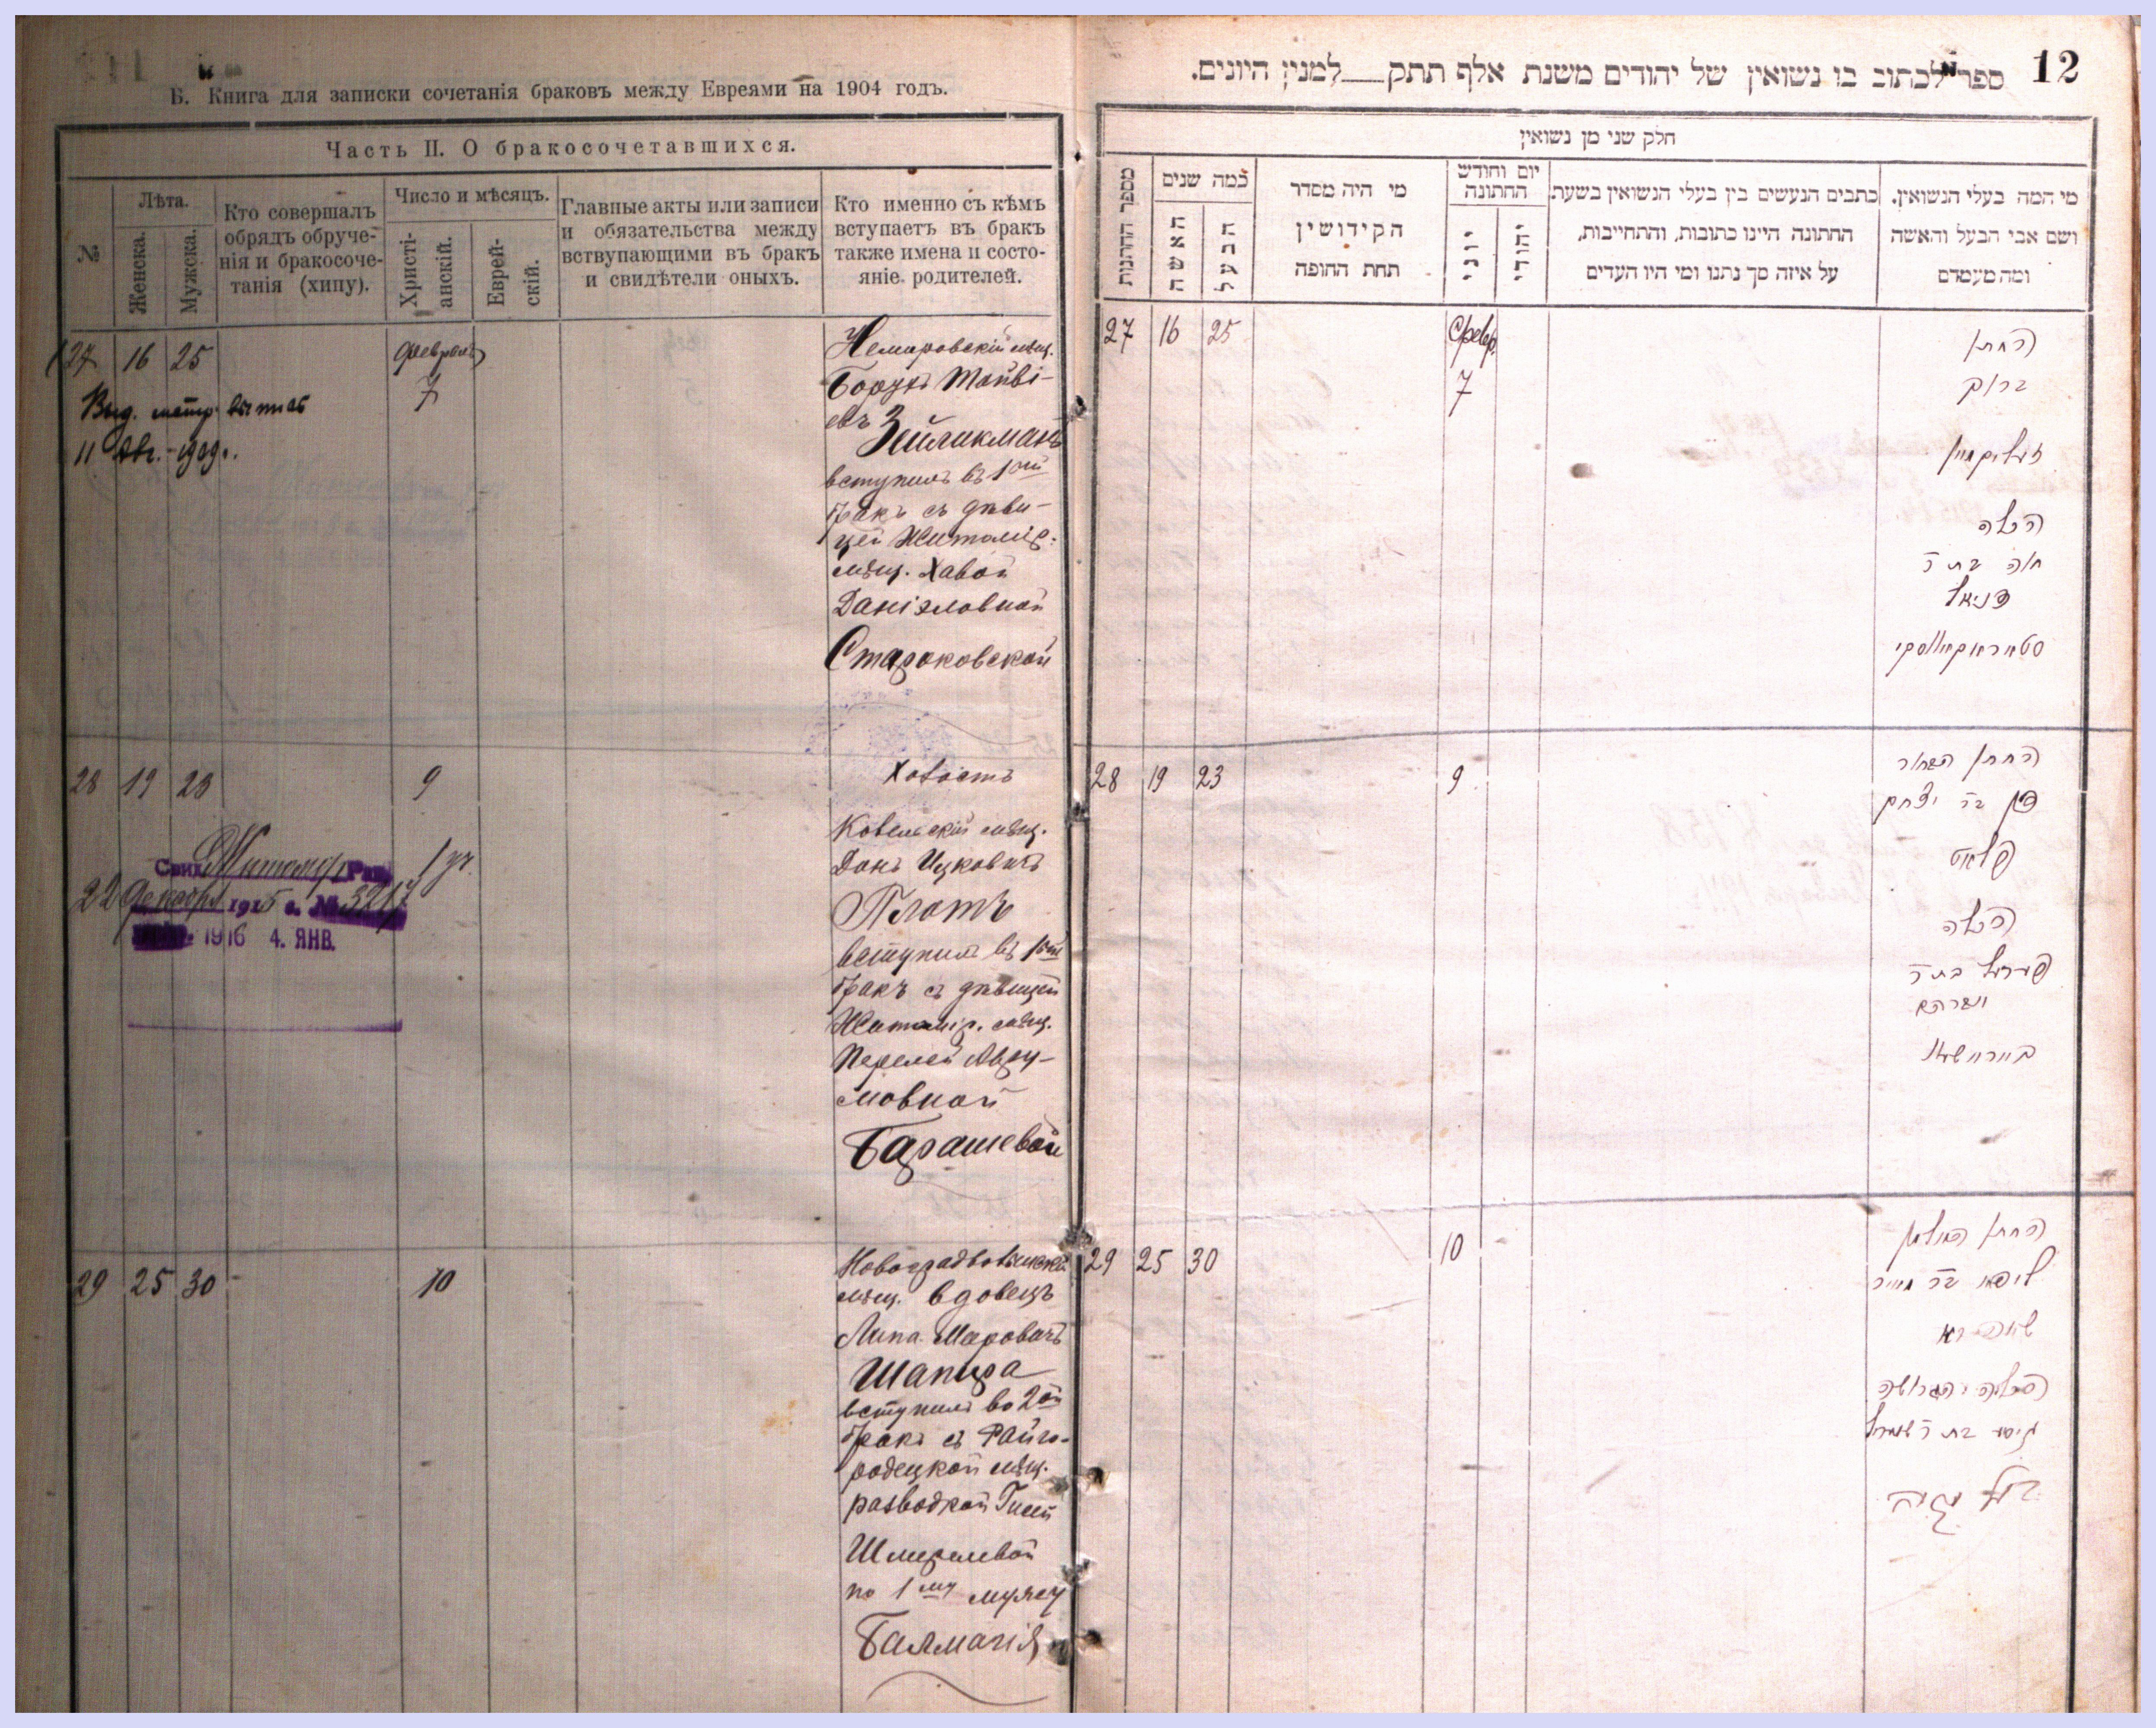 Б. Книга для записки сочетанія браковъ между Евреями на 1904 годъ.
Часть II. О бракосочетавшихся.
№
Лѣта.
Женска.
Мужска.
Кто совершалъ
обрядъ обруче-
нія и бракосоче-
танія (хипу).
Число и мѣсяцъ.
Христі-
анскій.
Еврей-
скій.
Главные акты или записи
и обязательства между
вствупающими въ бракъ
и свидѣтели оныхъ.
Кто именно съ кѣмъ
вступаетъ въ бракъ
также имена и состо-
яніе родителей.
27 16 25
Февраль
7
Выд. метр. выпись
11 Авг. 1909 г.
Немировскій мѣщ.
Борухъ
Зейликманъ
вступилъ въ 1ый
бракъ съ дѣви-
цей Житомір.
мѣщ. Хавой
Даніэловной
Староковской
28 19 23
9
22 Декабря 1915 г. № 3217
1916 4. ЯНВ.
Холостъ
Ковельскій мѣщ.
Донъ Ицковичъ
Плотъ
вступилъ въ 1ый
бракъ съ дѣвицей
Житомір. мѣщ.
Перелей Авру-
мовной
Барашевой
29 25 30
10
Новоградволынскій
мѣщ. вдовецъ
Липа Меровичъ
Шапира
вступилъ во 2ой
бракъ съ Райго-
родецкой мѣщ.
разводкой Гисей
Шмерлевой
по 1му мужу
Балмагія
12
ספר לכתוב בו נשואין של יהודים משנת אלף תתק למנין היונים.
חלק שני מן נשואין
מספר החתנות
כמה שנים
האשה
הבעל
מי היה מסדר
הקידושין
תחת החופה
יום וחודש
החתונה
יוני
יהודי
כתבים הנעשים בין בעלי הנשואין בשעת
החתונה היינו כתובות, והתחייבות,
על איזה סך נתנו ומי היו העדים
מי המה בעלי הנשואין.
ושם אבי הבעל והאשה
ומה מעמדם
27 16 25
Февр.
7
החתן
ברוך
זעליקמאן
הכלה
חוה בת ר'
דניאל
28 19 23
9
החתן הבחור
דן בר יצחק
פלאט
הכלה
פערעל בת ר'
אברהם
29 25 30
10
החתן האלמן
ליפא בר מאיר
שאפירא
הכלה הגרושה
גיסע בת ר' שמערל